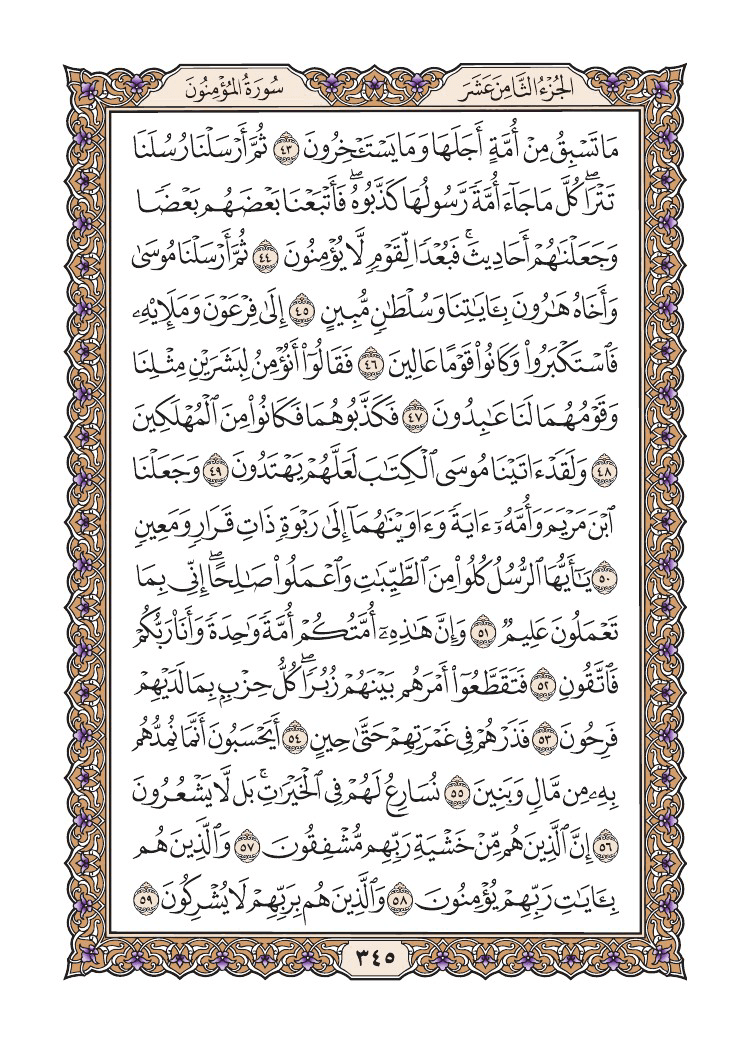 الجُزْءُ الثَّامِنَ عَشَرَ
سُورَةُ المُؤْمِنُونَ
مَا تَسۡبِقُ مِنۡ أُمَّةٍ أَجَلَهَا وَمَا يَسۡتَـٔۡخِرُونَ ٤٣ ثُمَّ أَرۡسَلۡنَا رُسُلَنَا
تَتۡرَاۖ كُلَّ مَا جَآءَ أُمَّةٗ رَّسُولُهَا كَذَّبُوهُۖ فَأَتۡبَعۡنَا بَعۡضَهُم بَعۡضٗا
وَجَعَلۡنَٰهُمۡ أَحَادِيثَۚ فَبُعۡدٗا لِّقَوۡمٖ لَّا يُؤۡمِنُونَ ٤٤ ثُمَّ أَرۡسَلۡنَا مُوسَىٰ
وَأَخَاهُ هَٰرُونَ بِـَٔايَٰتِنَا وَسُلۡطَٰنٖ مُّبِينٍ ٤٥ إِلَىٰ فِرۡعَوۡنَ وَمَلَإِيْهِۦ
فَٱسۡتَكۡبَرُواْ وَكَانُواْ قَوۡمًا عَالِينَ ٤٦ فَقَالُوٓاْ أَنُؤۡمِنُ لِبَشَرَيۡنِ مِثۡلِنَا
وَقَوۡمُهُمَا لَنَا عَٰبِدُونَ ٤٧ فَكَذَّبُوهُمَا فَكَانُواْ مِنَ ٱلۡمُهۡلَكِينَ
٤٨ وَلَقَدۡ ءَاتَيۡنَا مُوسَى ٱلۡكِتَٰبَ لَعَلَّهُمۡ يَهۡتَدُونَ ٤٩ وَجَعَلۡنَا
ٱبۡنَ مَرۡيَمَ وَأُمَّهُۥٓ ءَايَةٗ وَءَاوَيۡنَٰهُمَآ إِلَىٰ رَبۡوَةٖ ذَاتِ قَرَارٖ وَمَعِينٖ
٥٠ يَٰٓأَيُّهَا ٱلرُّسُلُ كُلُواْ مِنَ ٱلطَّيِّبَٰتِ وَٱعۡمَلُواْ صَٰلِحًاۖ إِنِّي بِمَا
تَعۡمَلُونَ عَلِيمٞ ٥١ وَإِنَّ هَٰذِهِۦٓ أُمَّتُكُمۡ أُمَّةٗ وَٰحِدَةٗ وَأَنَا۠ رَبُّكُمۡ
فَٱتَّقُونِ ٥٢ فَتَقَطَّعُوٓاْ أَمۡرَهُم بَيۡنَهُمۡ زُبُرٗاۖ كُلُّ حِزۡبِۭ بِمَا لَدَيۡهِمۡ
فَرِحُونَ ٥٣ فَذَرۡهُمۡ فِي غَمۡرَتِهِمۡ حَتَّىٰ حِينٍ ٥٤ أَيَحۡسَبُونَ أَنَّمَا نُمِدُّهُم
بِهِۦ مِن مَّالٖ وَبَنِينَ ٥٥ نُسَارِعُ لَهُمۡ فِي ٱلۡخَيۡرَٰتِۚ بَل لَّا يَشۡعُرُونَ
٥٦ إِنَّ ٱلَّذِينَ هُم مِّنۡ خَشۡيَةِ رَبِّهِم مُّشۡفِقُونَ ٥٧ وَٱلَّذِينَ هُم
بِـَٔايَٰتِ رَبِّهِمۡ يُؤۡمِنُونَ ٥٨ وَٱلَّذِينَ هُم بِرَبِّهِمۡ لَا يُشۡرِكُونَ ٥٩
٣٤٥